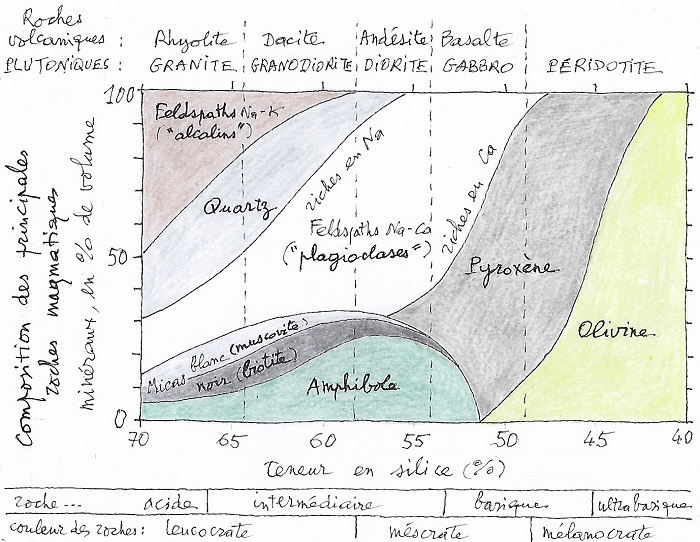 Roches
volcaniques : Rhyolite Dacite Andésite Basalte
PLUTONIQUES : GRANITE GRANODIORITE DIORITE GABBRO PÉRIDOTITE
Composition des principales
roches magmatiques
minéraux, en % de volume
100
50
0
Feldspaths Na-K
("alcalins")
Quartz
riches en Na
Feldspaths Na-Ca
("plagioclases")
riches en Ca
Pyroxène
Olivine
Micas blanc (muscovite)
noir (biotite)
Amphibola
70 65 60 55 50 45 40
teneur en silice (%)
roche... acide intermédiaire basique ultrabasique
couleur des roches: leucocrate méscrate mélanocrate